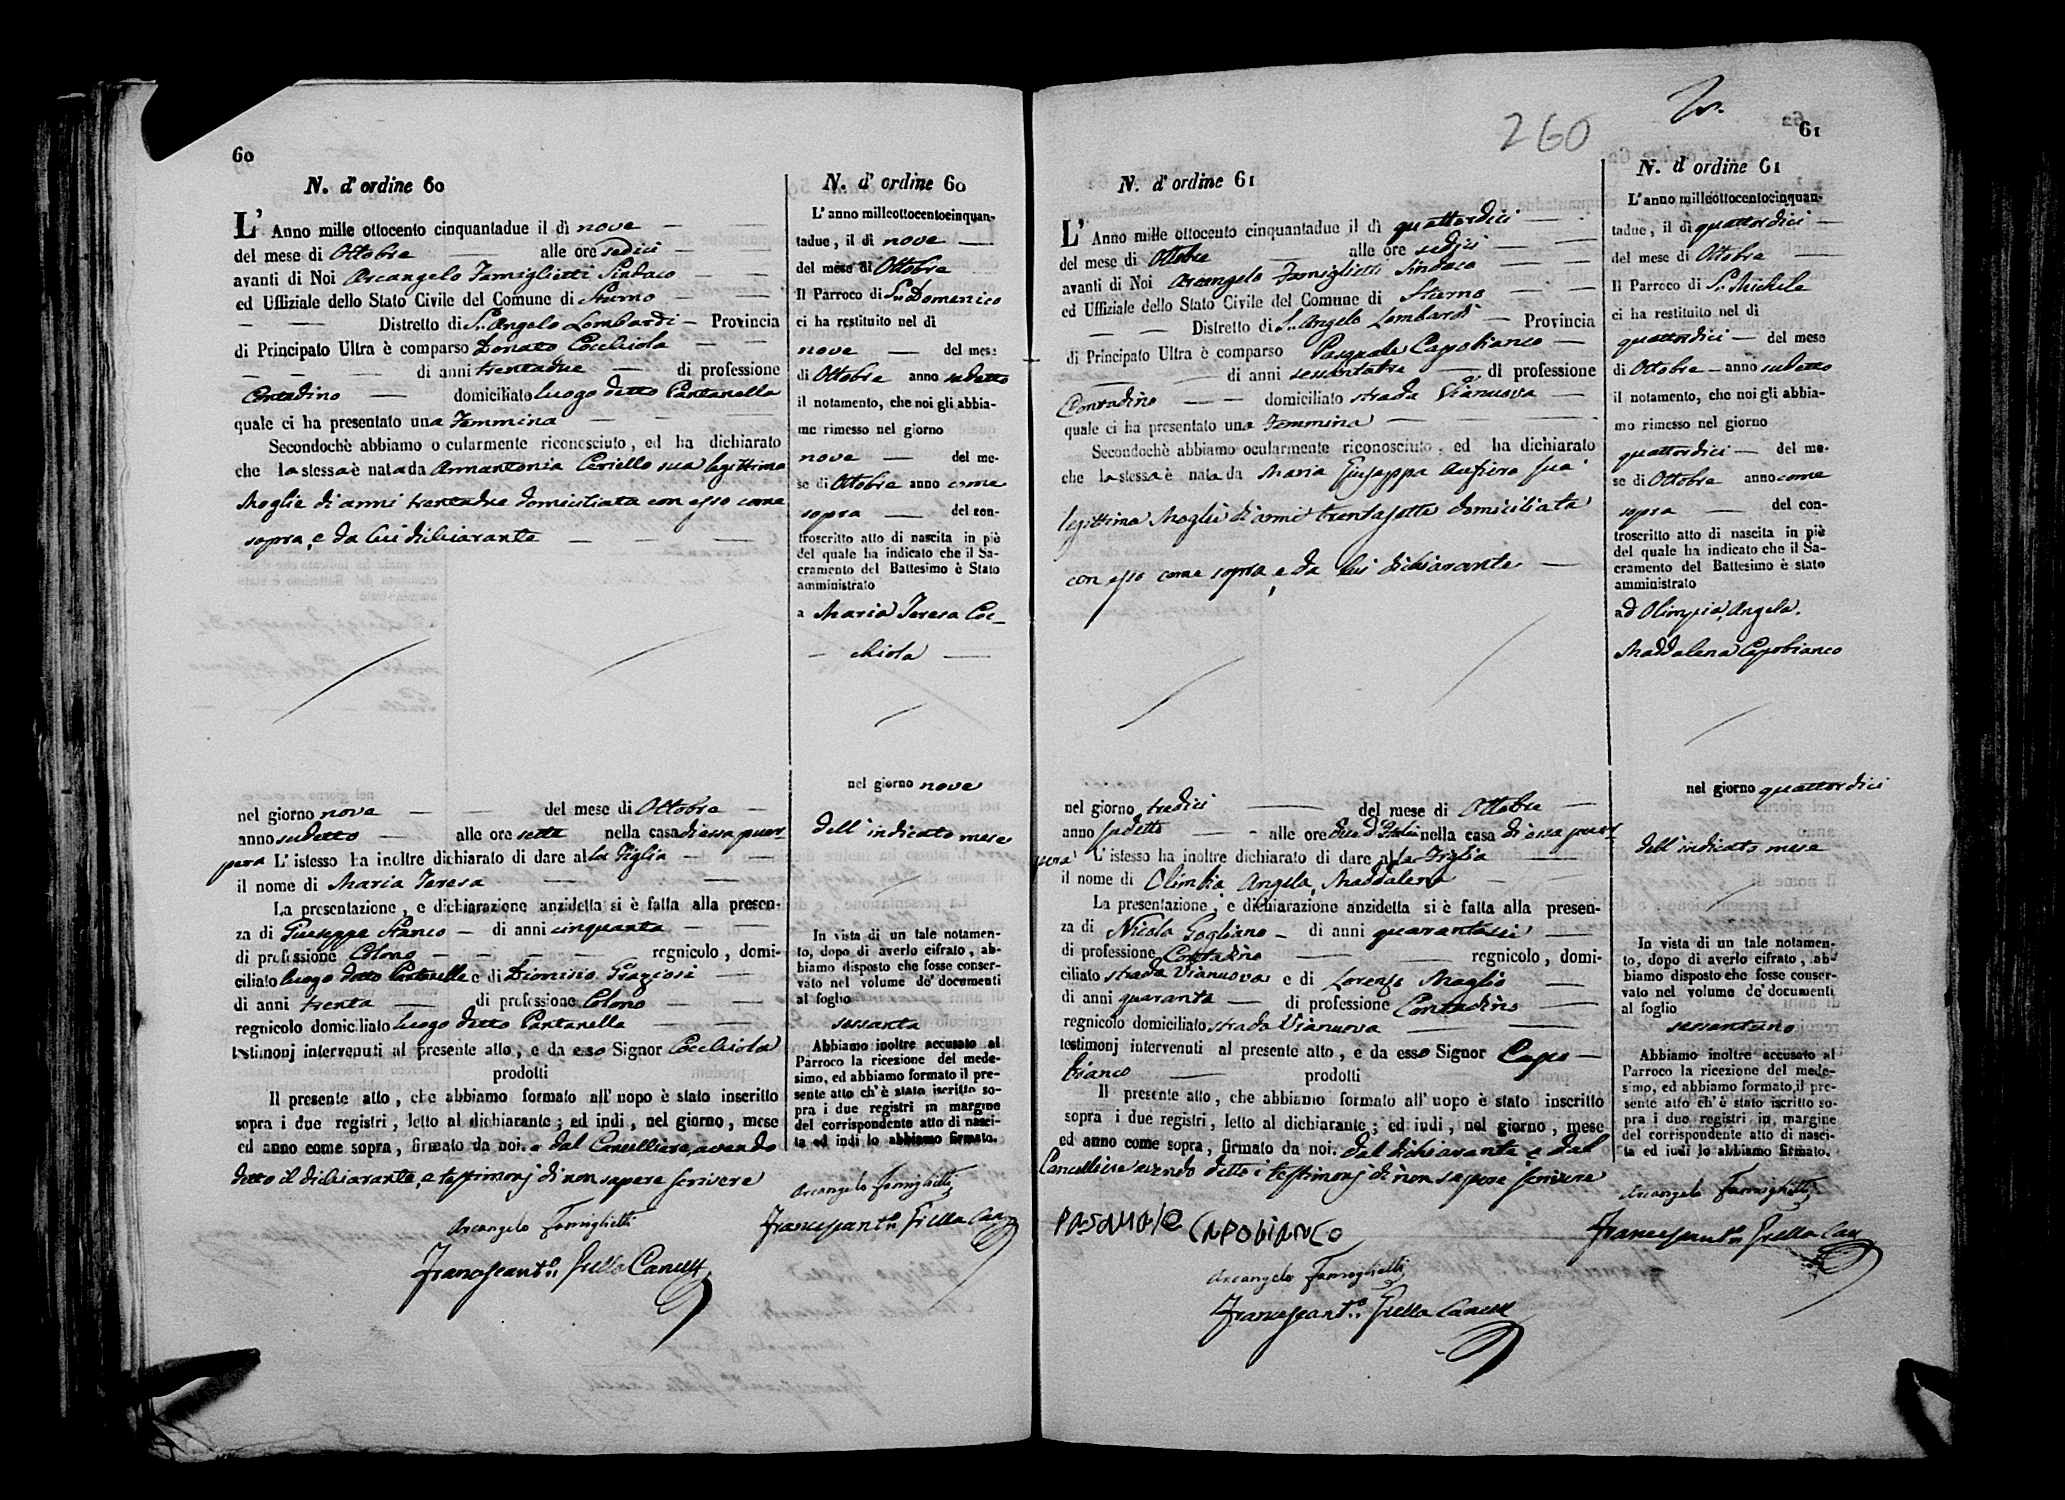 60
N. d' ordine 60
L' Anno mille ottocento cinquantadue il dì nove
del mese di Ottobre alle ore sedici
avanti di Noi Arcangelo Famiglietti Sindaco
ed Uffiziale dello Stato Civile del Comune di Sturno
Distretto di S. Angelo Lombardi Provincia
di Principato Ultra è comparso Donato Cocchiola
di anni trentadue di professione
Contadino domiciliato luogo detto Pantanella
quale ci ha presentato una Femmina
Secondochè abbiamo ocularmente riconosciuto, ed ha dichiarato
che la stessa è nata da Armantonia Ceriello sua legittima
Moglie di anni trentadue domiciliata con esso come
sopra, e da lui dichiarante
nel giorno nove del mese di Ottobre
anno sudetto alle ore sette nella casa di essa puer-
pera L'istesso ha inoltre dichiarato di dare alla Figlia
il nome di Maria Teresa
La presentazione, e dichiarazione anzidetta si è fatta alla presen-
za di Giuseppe Stanco di anni cinquanta
di professione Colono regnicolo, domi-
ciliato luogo detto Pantanella e di Dionisio Graziosi
di anni trenta di professione Colono
regnicolo domiciliato luogo detto Pantanella
testimonj intervenuti al presente atto, e da esso Signor Cocchiola
prodotti
Il presente atto, che abbiamo formato all' uopo è stato inscritto
sopra i due registri, letto al dichiarante; ed indi, nel giorno, mese
ed anno come sopra, firmato da noi. e dal Cancelliere, avendo
detto il dichiarante, e testimonj di non sapere scrivere
Arcangelo Famiglietti
Francescant.o Grella Cancell
N. d' ordine 60
L' anno milleottocentocinquan-
tadue, il dì nove
del mese di Ottobre
Il Parroco di S. Domenico
ci ha restituito nel dì
nove del mese
di Ottobre anno sudetto
il notamento, che noi gli abbia-
mo rimesso nel giorno
nove del me-
se di Ottobre anno come
sopra del con-
troscritto atto di nascita in piè
del quale ha indicato che il Sa-
cramento del Battesimo è Stato
amministrato
a Maria Teresa Coc-
chiola
nel giorno nove
dell' indicato mese
In vista di un tale notamen-
to, dopo di averlo cifrato, ab-
biamo disposto che fosse conser-
vato nel volume de' documenti
al foglio
sessanta
Abbiamo inoltre accusato al
Parroco la ricezione del mede-
simo, ed abbiamo formato il pre-
sente atto ch' è stato iscritto so-
pra i due registri in margine
del corrispondente atto di nasci-
ta ed indi lo abbiamo firmato.
Arcangelo Famiglietti
Francescant.o Grella Can
260
61
N. d' ordine 61
L' Anno mille ottocento cinquantadue il dì quattordici
del mese di Ottobre alle ore sedici
avanti di Noi Arcangelo Famiglietti Sindaco
ed Uffiziale dello Stato Civile del Comune di Sturno
Distretto di S. Angelo Lombardi Provincia
di Principato Ultra è comparso Pasquale Capobianco
di anni sessantatre di professione
Contadino domiciliato strada Vianuova
quale ci ha presentato una Femmina
Secondochè abbiamo ocularmente riconosciuto, ed ha dichiarato
che la stessa è nata da Maria Giuseppa Aufiero sua
legittima Moglie di anni trentasette domiciliata
con esso come sopra, e da lui dichiarante
nel giorno tredici del mese di Ottobre
anno sudetto alle ore due d'Italia nella casa di essa puer-
pera L'istesso ha inoltre dichiarato di dare alla Figlia
il nome di Olimbia, Angela, Maddalena
La presentazione, e dichiarazione anzidetta si è fatta alla presen-
za di Nicola Gogliano di anni quarantasei
di professione Contadino regnicolo, domi-
ciliato strada Vianuova e di Lorenzo Maglio
di anni quaranta di professione Contadino
regnicolo domiciliato strada Vianuova
testimonj intervenuti al presente atto, e da esso Signor Capo-
bianco prodotti
Il presente atto, che abbiamo formato all' uopo è stato inscritto
sopra i due registri, letto al dichiarante; ed indi, nel giorno, mese
ed anno come sopra, firmato da noi. dal dichiarante e dal
Cancelliere avendo detto i testimonj di non sapere scrivere
PASQUALE CAPOBIANCO
Arcangelo Famiglietti
Francescant.o Grella Cancell
N. d' ordine 61
L' anno milleottocentocinquan-
tadue, il dì quattordici
del mese di Ottobre
Il Parroco di S. Michele
ci ha restituito nel dì
quattordici del mese
di Ottobre anno sudetto
il notamento, che noi gli abbia-
mo rimesso nel giorno
quattordici del me-
se di Ottobre anno come
sopra del con-
troscritto atto di nascita in piè
del quale ha indicato che il Sa-
cramento del Battesimo è stato
amministrato
ad Olimpia, Angela,
Maddalena Capobianco
nel giorno quattordici
dell' indicato mese
In vista di un tale notamen-
to, dopo di averlo cifrato, ab-
biamo disposto che fosse conser-
vato nel volume de' documenti
al foglio
sessantuno
Abbiamo inoltre accusato al
Parroco la ricezione del mede-
simo, ed abbiamo formato il pre-
sente atto ch' è stato iscritto so-
pra i due registri in margine
del corrispondente atto di nasci-
ta ed indi lo abbiamo firmato.
Arcangelo Famiglietti
Francescant.o Grella Can